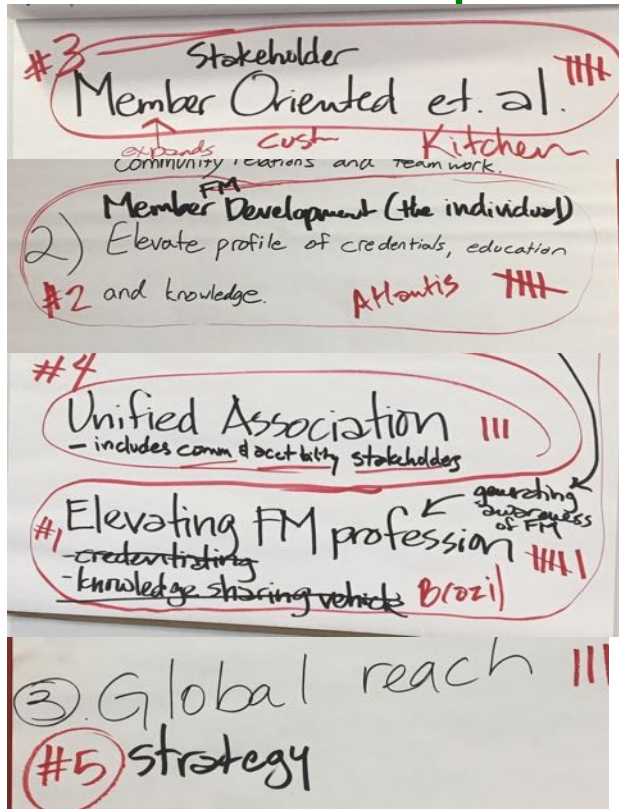 #3 Stakeholder
Member Oriented et. al.
expands Cust Kitchen
Community relations and teamwork.
FM
Member Development (the individual)
2) Elevate profile of credentials, education
#2 and knowledge. Atlantis
#4
Unified Association III
- includes comm & acctbility stakeholders
generating
awareness
of FM
#1 Elevating FM profession
- credentialing
- knowledge sharing vehicle Brazil
3. Global reach III
#5 strategy